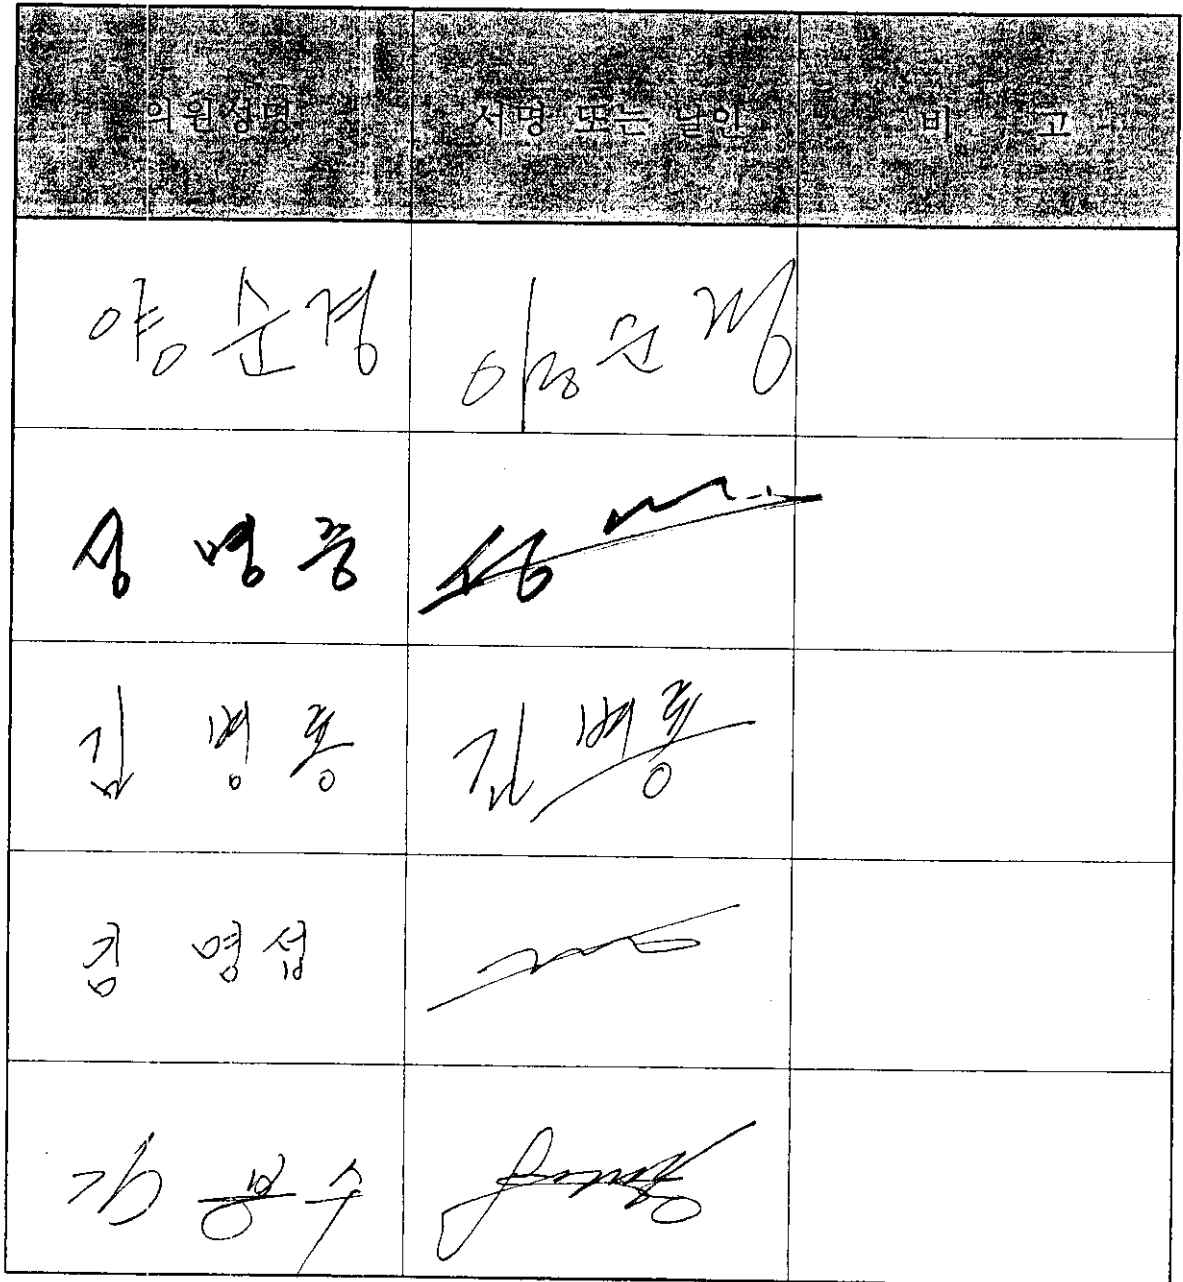 의원성명 서명 또는 날인 비 고
양순경 양순경
성명중
김병홍 김병홍
김명섭
김봉수